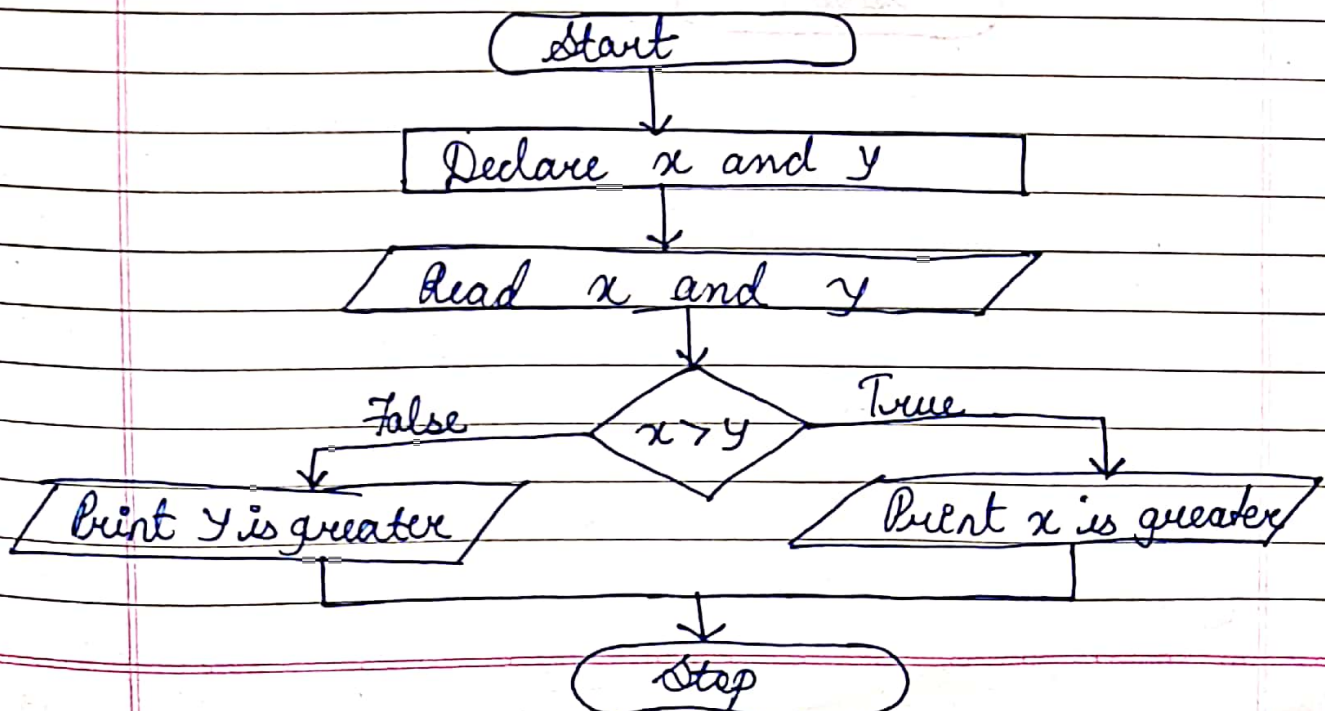 Start
Declare x and y
Read x and y
x > y
False
True
Print y is greater
Print x is greater
Stop